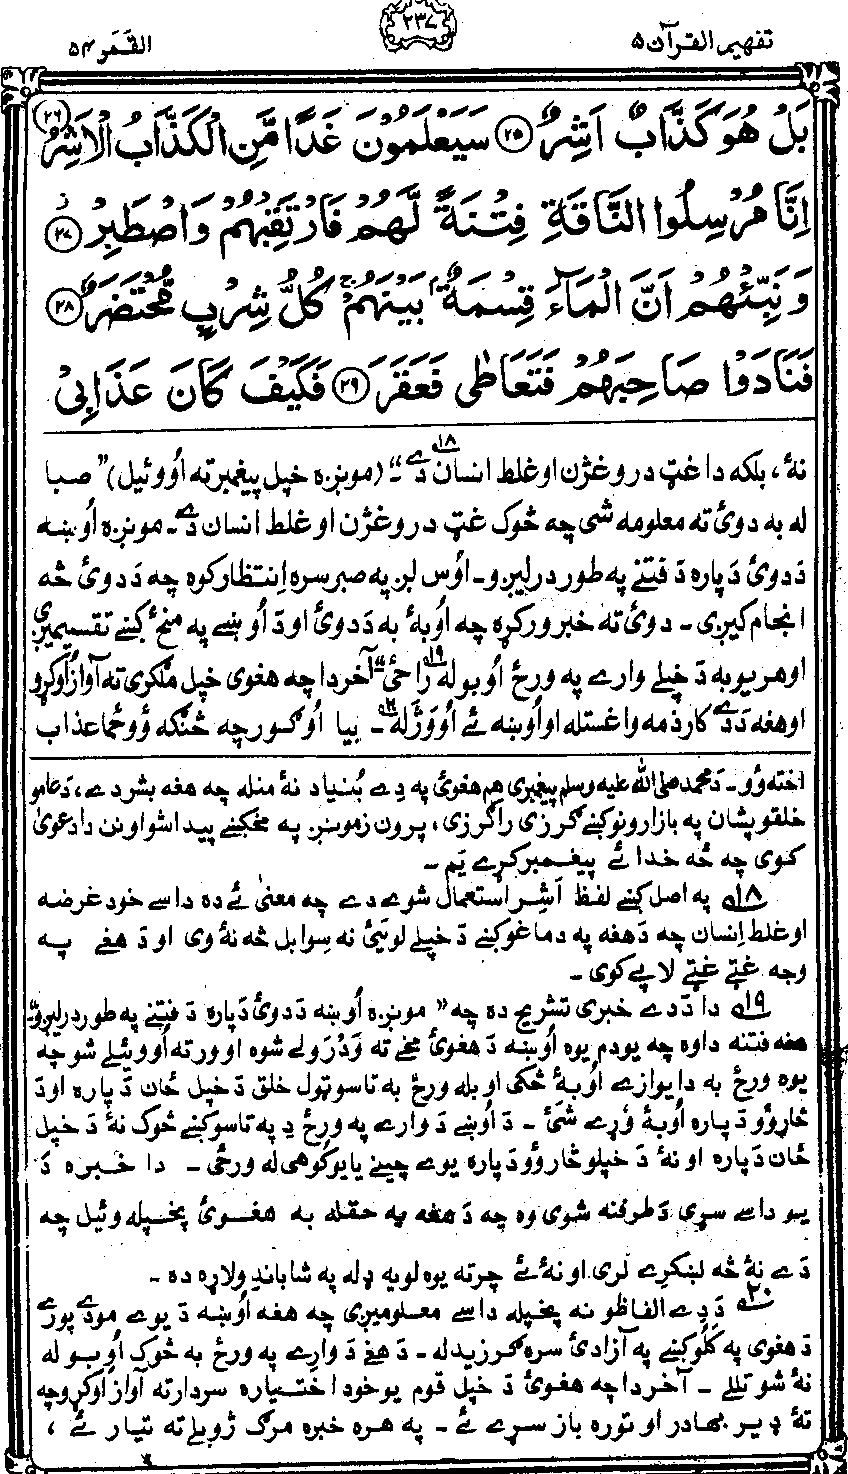 تفهيم القرآن ۵
۲۳۷
القمر ۵۴
بَلْ هُوَ كَذَّابٌ اَشِرٌ ﴿۲۵﴾ سَيَعْلَمُوْنَ غَدًا مَّنِ الْكَذَّابُ الْاَشِرُ ﴿۲۶﴾
اِنَّا مُرْسِلُوا النَّاقَةِ فِتْنَةً لَّهُمْ فَارْتَقِبْهُمْ وَاصْطَبِرْ ﴿۲۷﴾
وَنَبِّئْهُمْ اَنَّ الْمَآءَ قِسْمَةٌۢ بَيْنَهُمْ ۚ كُلُّ شِرْبٍ مُّحْتَضَرٌ ﴿۲۸﴾
فَنَادَوْا صَاحِبَهُمْ فَتَعَاطٰى فَعَقَرَ ﴿۲۹﴾ فَكَيْفَ كَانَ عَذَابِيْ
نهٔ، بلکه دا غټ دروغژن او غلط انسان دے۱۸ـ“ (مونږه خپل پیغمبر ته اُووئیل) ”صبا
له به دوئ ته معلومه شی چه څوک غټ دروغژن او غلط انسان دے۔ مونږه اُوښه
دَدوئ دَپاره دَ فتنے په طور درلیږو۔ اوُس لږ په صبر سره اِنتظار کوه چه دَ دوئ څه
انجام کیږی۔ دوئ ته خبر ورکړه چه اُوبهٔ به دَ دوئ او دَ اُوښے په منځ کښے تقسیمیږی
او هر یو به دَ خپلے وارے په ورځ اُوبو له راځی۱۹ـ“ آخر دا چه هغوی خپل ملګری ته آواز اُوکړو
او هغه دَ دے کار ذمه واغستله او اُوښه ئے اُووژله۲۰۔ بیا اُوګورچه څنګه وُو ځما عذاب
اخته وُو۔ دَ محمد صلی اللہ علیہ وسلم پیغمبری هم هغوئ په دِے بُنیاد نهٔ منله چه هغه بشر دے، دَ عامو
خلقو پشان په بازارونو کښے ګرزی راګرزی، پرون زمونږ په مخکښے پیدا شو او نن دا دعویٰ
کوی چه څه خدائے پیغمبر کړے یَم۔
۱۸ په اصل کښے لفظ اَشِر استعمال شوے دے چه معنیٰ ئے ده داسے خود غرضه
او غلط اِنسان چه دَ هغه په دماغو کښے دَ خپلے لوئیئ نه سِوا بل څه نهٔ وی او دَ هغے په
وجه غټے غټے لاپے کوی۔
۱۹ دا دَ دے خبری تشریح ده چه ”مونږه اُوښه دَ دوئ دَپاره دَ فتنے په طور درلیږو“
هغه فتنه دا وه چه یودم یوه اُوښه دَ هغوئ مخے ته وَدْرَولے شوه او ورته اُووئیلے شو چه
یوه ورځ به دا یوازے اُوبهٔ څکی او بله ورځ به تاسو ټول خلق دَ خپل ځان دَ پاره او دَ
څارؤو دَپاره اُوبهٔ وُړے شئ۔ دَ اُوښے دَ وارے په ورځ دِ په تاسو کښے څوک نهٔ دَ خپل
ځان دَپاره او نهٔ دَ خپلو څارؤو دَپاره یوے چینے یا یو کوهی له ورځی۔ دا خبره دَ
یو داسے سړی دَ طرفنه شوی وه چه دَ هغه په حقله به هغوئ پخپله وئیل چه
دَے نهٔ څه لښکرے لری او نهٔ ئے چرته یوه لویه ډله په شا باندِ ولاړه ده۔
۲۰ دَدے الفاظو نه پخپله داسے معلومیږی چه هغه اُوښه دَ یوے مودے پورے
دَ هغوی په کَلُو کښے په آزادئ سره ګرزیدله۔ دَ هغے دَ وارے په ورځ به څوک اُوبو له
نهٔ شو تللے۔ آخر دا چه هغوئ دَ خپل قوم یو خود اختیاره سردار ته آواز اُوکړو چه
تهٔ ډیر بهادر او توره باز سړے ئے۔ په هره خبره مرګ ژوبلے ته تیار ئے،